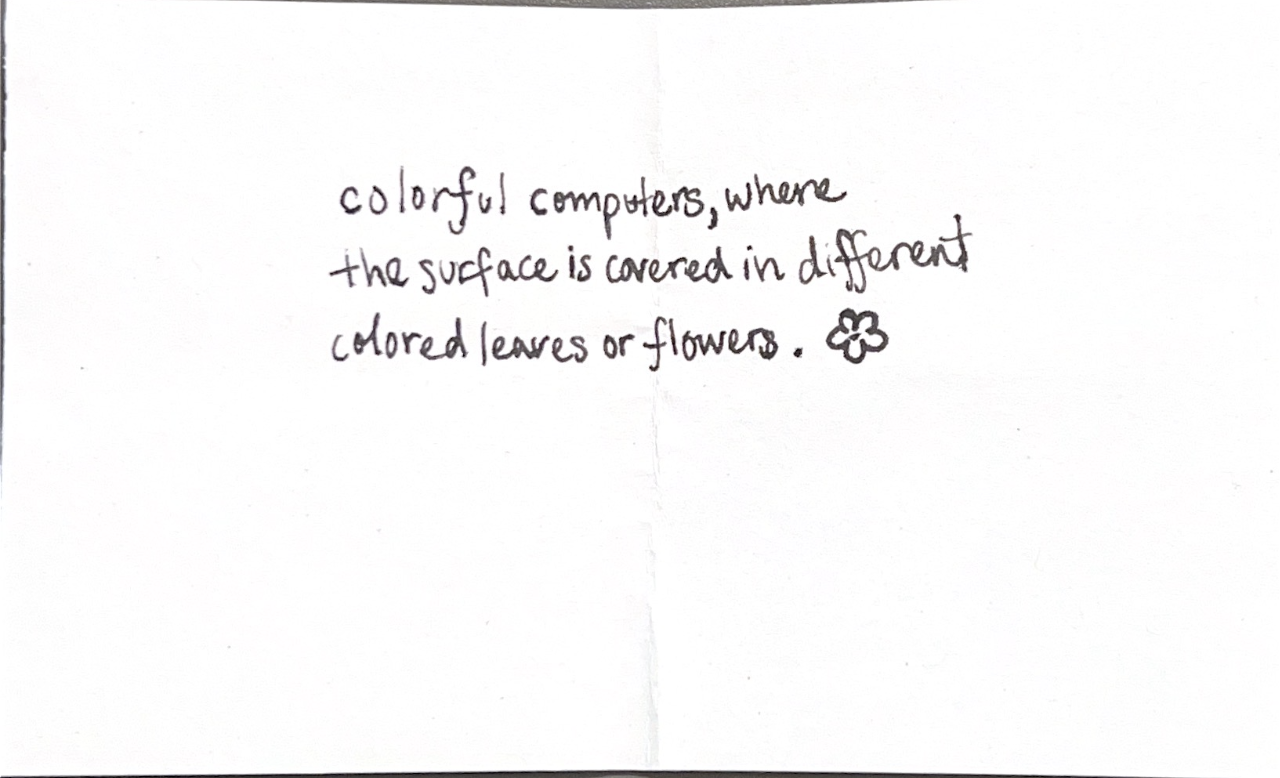 colorful computers, where
the surface is covered in different
colored leaves or flowers.